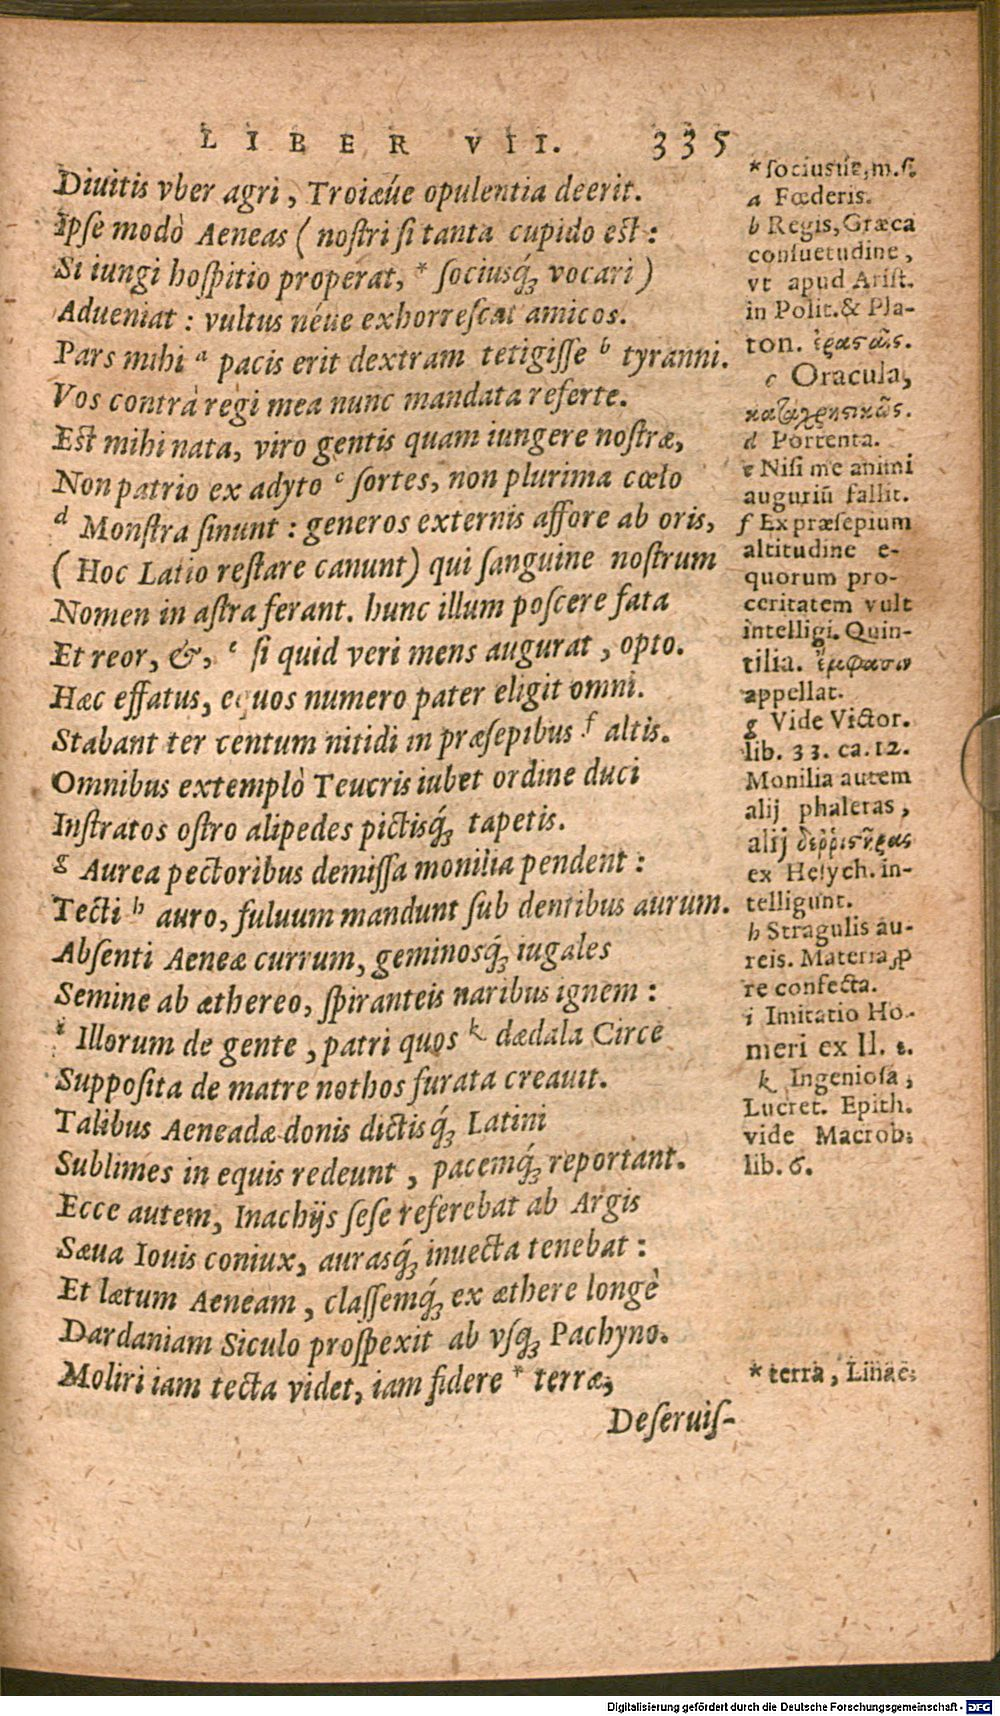 LIBER VII. 335
Diuitis vber agri, Troiæúe opulentia deerit.
Ipse modò Aeneas (nostri si tanta cupido est:
Si iungi hospitio properat, * sociusq́; vocari)
Adueniat: vultus néue exhorrescat amicos.
Pars mihi a pacis erit dextram tetigisse b tyranni.
Vos contrà regi mea nunc mandata referte.
Est mihi nata, viro gentis quam iungere nostræ,
Non patrio ex adyto c sortes, non plurima cœlo
d Monstra sinunt: generos externis affore ab oris,
(Hoc Latio restare canunt) qui sanguine nostrum
Nomen in astra ferant. hunc illum poscere fata
Et reor, &, e si quid veri mens augurat, opto.
Hæc effatus, equos numero pater eligit omni.
Stabant ter centum nitidi in præsepibus f altis.
Omnibus extemplò Teucris iubet ordine duci
Instratos ostro alipedes pictisq́; tapetis.
g Aurea pectoribus demissa monilia pendent:
Tecti h auro, fuluum mandunt sub dentibus aurum.
Absenti Aeneæ currum, geminosq́; iugales
Semine ab æthereo, spiranteis naribus ignem:
i Illorum de gente, patri quos k dædala Circe
Supposita de matre nothos furata creauit.
Talibus Aeneadæ donis dictisq́; Latini
Sublimes in equis redeunt, pacemq́; reportant.
Ecce autem, Inachijs sese referebat ab Argis
Sæua Iouis coniux, aurasq́; inuecta tenebat:
Et lætum Aeneam, classemq́; ex æthere longè
Dardaniam Siculo prospexit ab vsq; Pachyno.
Moliri iam tecta videt, iam fidere * terræ;
Deseruis-
* sociusúe, m.s.
a Fœderis.
b Regis, Græca
consuetudine,
vt apud Arist.
in Polit. & Pla-
ton.
c Oracula,
καταχρηστικῶς.
d Portenta.
e Nisi me animi
auguriū fallit.
f Ex præsepium
altitudine e-
quorum pro-
ceritatem vult
intelligi. Quin-
tilia. ἔμφασιν
appellat.
g Vide Victor.
lib. 33. ca. 12.
Monilia autem
alij phaleras,
alij
ex Hesych. in-
telligunt.
h Stragulis au-
reis. Materia ꝓ
re confecta.
i Imitatio Ho-
meri ex Il. ε.
k Ingeniosa,
Lucret. Epith.
vide Macrob.
lib. 6.
* terra, Linac.
Digitalisierung gefördert durch die Deutsche Forschungsgemeinschaft - DFG